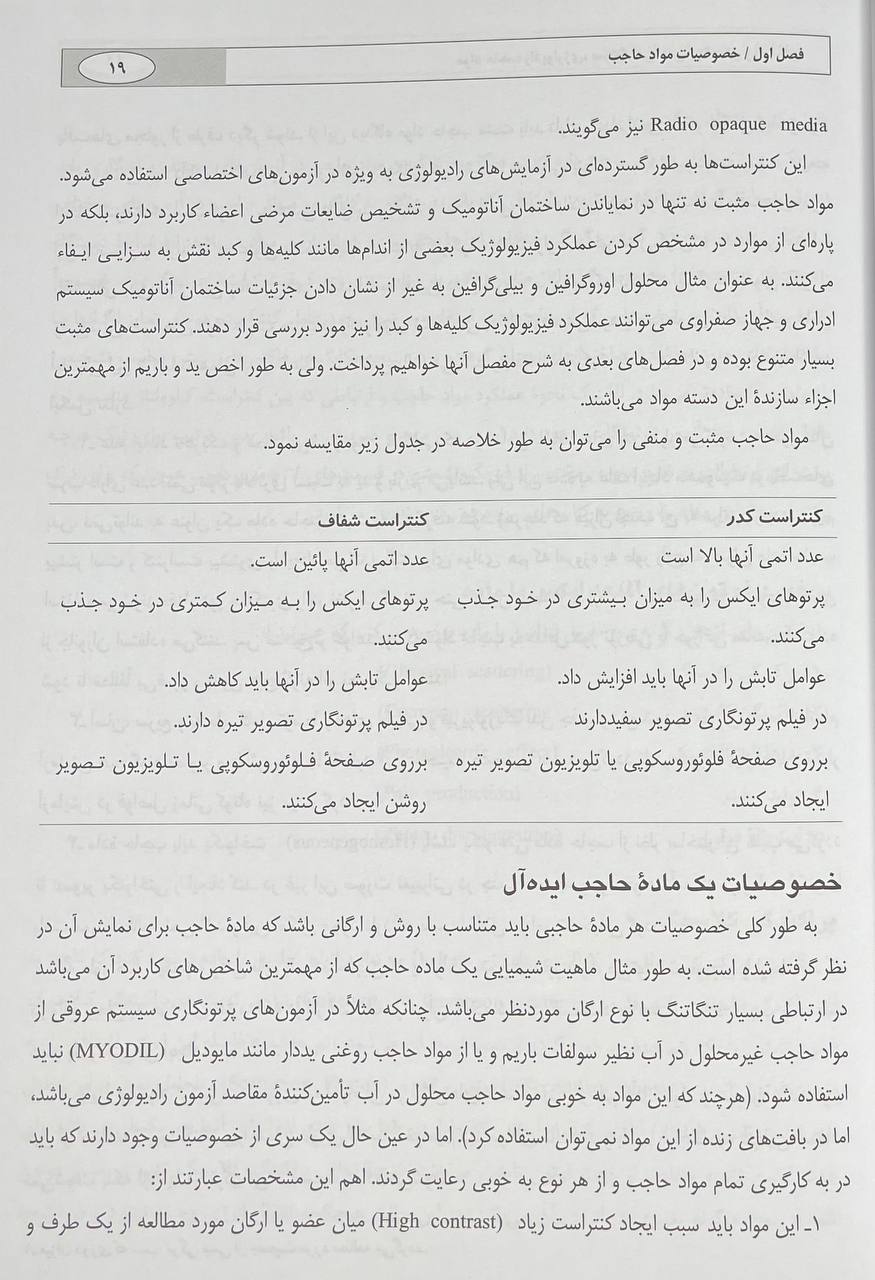 فصل اول / خصوصیات مواد حاجب
۱۹
Radio opaque media نیز می‌گویند.
این کنتراست‌ها به طور گسترده‌ای در آزمایش‌های رادیولوژی به ویژه در آزمون‌های اختصاصی استفاده می‌شود.
مواد حاجب مثبت نه تنها در نمایاندن ساختمان آناتومیک و تشخیص ضایعات مرضی اعضاء کاربرد دارند، بلکه در
پاره‌ای از موارد در مشخص کردن عملکرد فیزیولوژیک بعضی از اندام‌ها مانند کلیه‌ها و کبد نقش به سزایی ایفاء
می‌کنند. به عنوان مثال محلول اوروگرافین و بیلی‌گرافین به غیر از نشان دادن جزئیات ساختمان آناتومیک سیستم
ادراری و جهاز صفراوی می‌توانند عملکرد فیزیولوژیک کلیه‌ها و کبد را نیز مورد بررسی قرار دهند. کنتراست‌های مثبت
بسیار متنوع بوده و در فصل‌های بعدی به شرح مفصل آنها خواهیم پرداخت. ولی به طور اخص ید و باریم از مهمترین
اجزاء سازندهٔ این دسته مواد می‌باشند.
مواد حاجب مثبت و منفی را می‌توان به طور خلاصه در جدول زیر مقایسه نمود.
کنتراست کدر
کنتراست شفاف
عدد اتمی آنها بالا است
عدد اتمی آنها پائین است.
پرتوهای ایکس را به میزان بیشتری در خود جذب
می‌کنند.
پرتوهای ایکس را به میزان کمتری در خود جذب
می‌کنند.
عوامل تابش را در آنها باید افزایش داد.
عوامل تابش را در آنها باید کاهش داد.
در فیلم پرتونگاری تصویر سفیددارند
در فیلم پرتونگاری تصویر تیره دارند.
برروی صفحهٔ فلوئوروسکوپی یا تلویزیون تصویر تیره
ایجاد می‌کنند.
برروی صفحهٔ فلوئوروسکوپی یا تلویزیون تصویر
روشن ایجاد می‌کنند.
خصوصیات یک مادهٔ حاجب ایده‌آل
به طور کلی خصوصیات هر مادهٔ حاجبی باید متناسب با روش و ارگانی باشد که مادهٔ حاجب برای نمایش آن در
نظر گرفته شده است. به طور مثال ماهیت شیمیایی یک ماده حاجب که از مهمترین شاخص‌های کاربرد آن می‌باشد
در ارتباطی بسیار تنگاتنگ با نوع ارگان موردنظر می‌باشد. چنانکه مثلاً در آزمون‌های پرتونگاری سیستم عروقی از
مواد حاجب غیرمحلول در آب نظیر سولفات باریم و یا از مواد حاجب روغنی یددار مانند مایودیل (MYODIL) نباید
استفاده شود. (هرچند که این مواد به خوبی مواد حاجب محلول در آب تأمین‌کنندهٔ مقاصد آزمون رادیولوژی می‌باشد،
اما در بافت‌های زنده از این مواد نمی‌توان استفاده کرد). اما در عین حال یک سری از خصوصیات وجود دارند که باید
در به کارگیری تمام مواد حاجب و از هر نوع به خوبی رعایت گردند. اهم این مشخصات عبارتند از:
۱ـ این مواد باید سبب ایجاد کنتراست زیاد (High contrast) میان عضو یا ارگان مورد مطالعه از یک طرف و